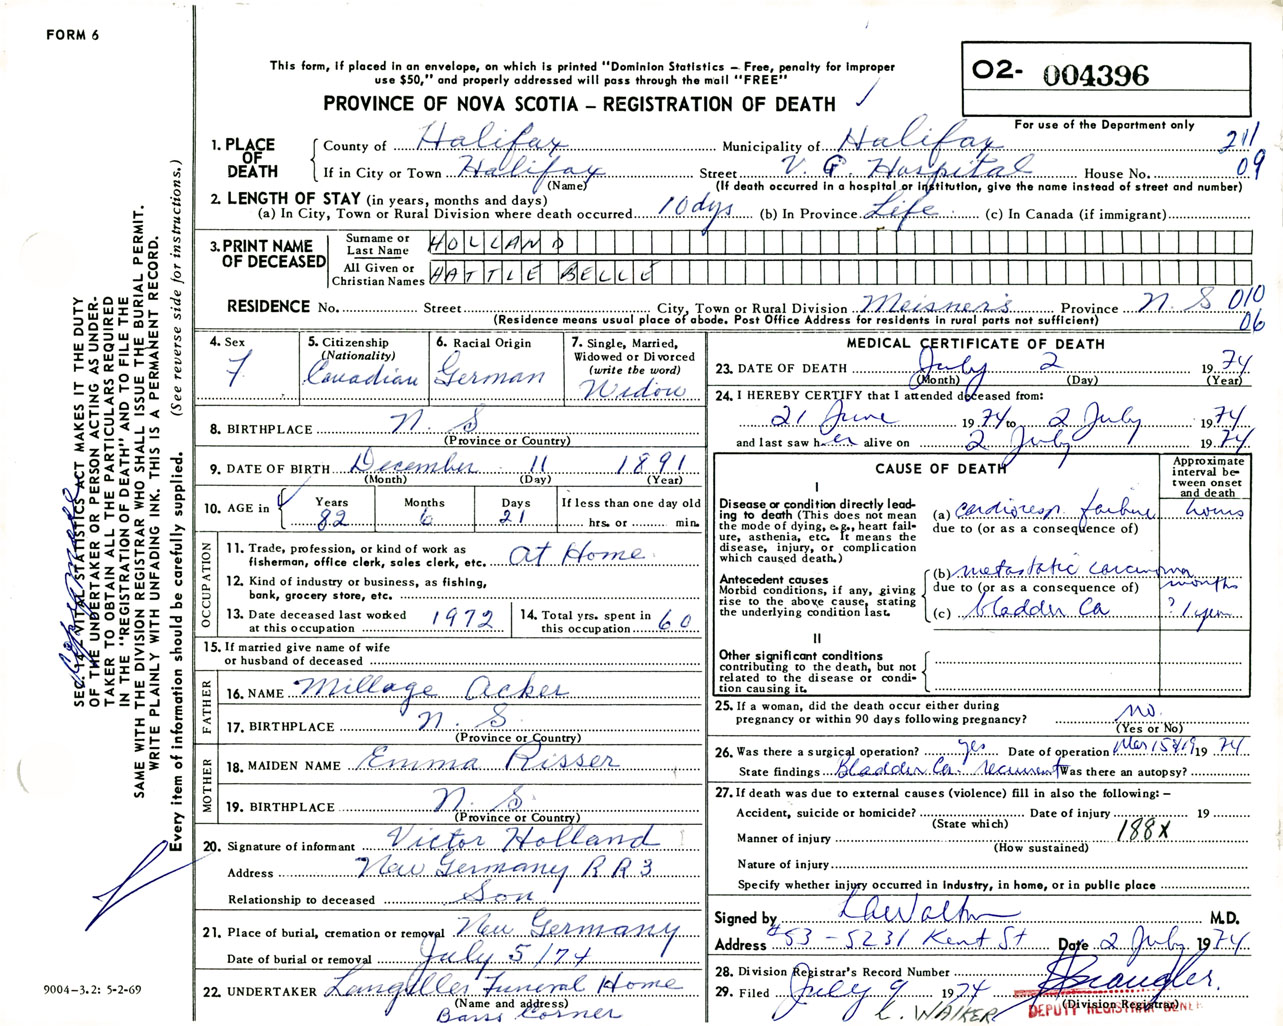 FORM 6
This form, if placed in an envelope, on which is printed "Dominion Statistics — Free, penalty for improper
use $50," and properly addressed will pass through the mail "FREE"
PROVINCE OF NOVA SCOTIA – REGISTRATION OF DEATH
O2- 004396
For use of the Department only
211
09
1. PLACE OF DEATH
County of Halifax Municipality of Halifax
If in City or Town Halifax Street V. G. Hospital House No.
(Name) (If death occurred in a hospital or institution, give the name instead of street and number)
2. LENGTH OF STAY (in years, months and days)
(a) In City, Town or Rural Division where death occurred 10 dys (b) In Province Life (c) In Canada (if immigrant)
3. PRINT NAME OF DECEASED
Surname or Last Name HOLLAND
All Given or Christian Names HATTLE BELLE
RESIDENCE No. Street City, Town or Rural Division Meisner's Province N. S 010
(Residence means usual place of abode. Post Office Address for residents in rural parts not sufficient) 06
4. Sex F
5. Citizenship (Nationality) Canadian
6. Racial Origin German
7. Single, Married, Widowed or Divorced (write the word) Widow
8. BIRTHPLACE N. S
(Province or Country)
9. DATE OF BIRTH December 11 1891
(Month) (Day) (Year)
10. AGE in Years 82 Months 6 Days 21 If less than one day old hrs. or min.
OCCUPATION
11. Trade, profession, or kind of work as fisherman, office clerk, sales clerk, etc. At Home
12. Kind of industry or business, as fishing, bank, grocery store, etc.
13. Date deceased last worked at this occupation 1972
14. Total yrs. spent in this occupation 60
15. If married give name of wife or husband of deceased
FATHER
16. NAME Millage Acker
17. BIRTHPLACE N. S.
(Province or Country)
MOTHER
18. MAIDEN NAME Emma Risser
19. BIRTHPLACE N. S
(Province or Country)
20. Signature of informant Victor Holland
Address New Germany R R 3
Relationship to deceased Son
21. Place of burial, cremation or removal New Germany
Date of burial or removal July 5/74
22. UNDERTAKER Langilles Funeral Home
(Name and address)
Barss Corner
MEDICAL CERTIFICATE OF DEATH
23. DATE OF DEATH July 2 1974
(Month) (Day) (Year)
24. I HEREBY CERTIFY that I attended deceased from:
21 June 1974 to 2 July 1974
and last saw her alive on 2 July 1974
CAUSE OF DEATH
Approximate interval between onset and death
I
Disease or condition directly leading to death (This does not mean the mode of dying, e.g., heart failure, asthenia, etc. It means the disease, injury, or complication which caused death.)
(a) cardioresp. failure hours
due to (or as a consequence of)
Antecedent causes
Morbid conditions, if any, giving rise to the above cause, stating the underlying condition last.
(b) metastatic carcinoma months
due to (or as a consequence of)
(c) bladder Ca ? 1 year
II
Other significant conditions contributing to the death, but not related to the disease or condition causing it.
25. If a woman, did the death occur either during pregnancy or within 90 days following pregnancy? no.
(Yes or No)
26. Was there a surgical operation? yes Date of operation Mar 15 1974
State findings Bladder Ca. recurrent Was there an autopsy?
27. If death was due to external causes (violence) fill in also the following: –
Accident, suicide or homicide? Date of injury 19
(State which)
Manner of injury 188X
(How sustained)
Nature of injury
Specify whether injury occurred in industry, in home, or in public place
Signed by M.D.
Address #53 - 5231 Kent St Date 2 July 1974
28. Division Registrar's Record Number
29. Filed July 9 1974
(Division Registrar)
L. WALKER
DEPUTY REGISTRAR GENER
SEC. 14 VITAL STATISTICS ACT MAKES IT THE DUTY
OF THE UNDERTAKER OR PERSON ACTING AS UNDER-
TAKER TO OBTAIN ALL THE PARTICULARS REQUIRED
IN THE "REGISTRATION OF DEATH" AND TO FILE THE
SAME WITH THE DIVISION REGISTRAR WHO SHALL ISSUE THE BURIAL PERMIT.
WRITE PLAINLY WITH UNFADING INK. THIS IS A PERMANENT RECORD.
Every item of information should be carefully supplied. (See reverse side for instructions.)
9004-3.2: 5-2-69